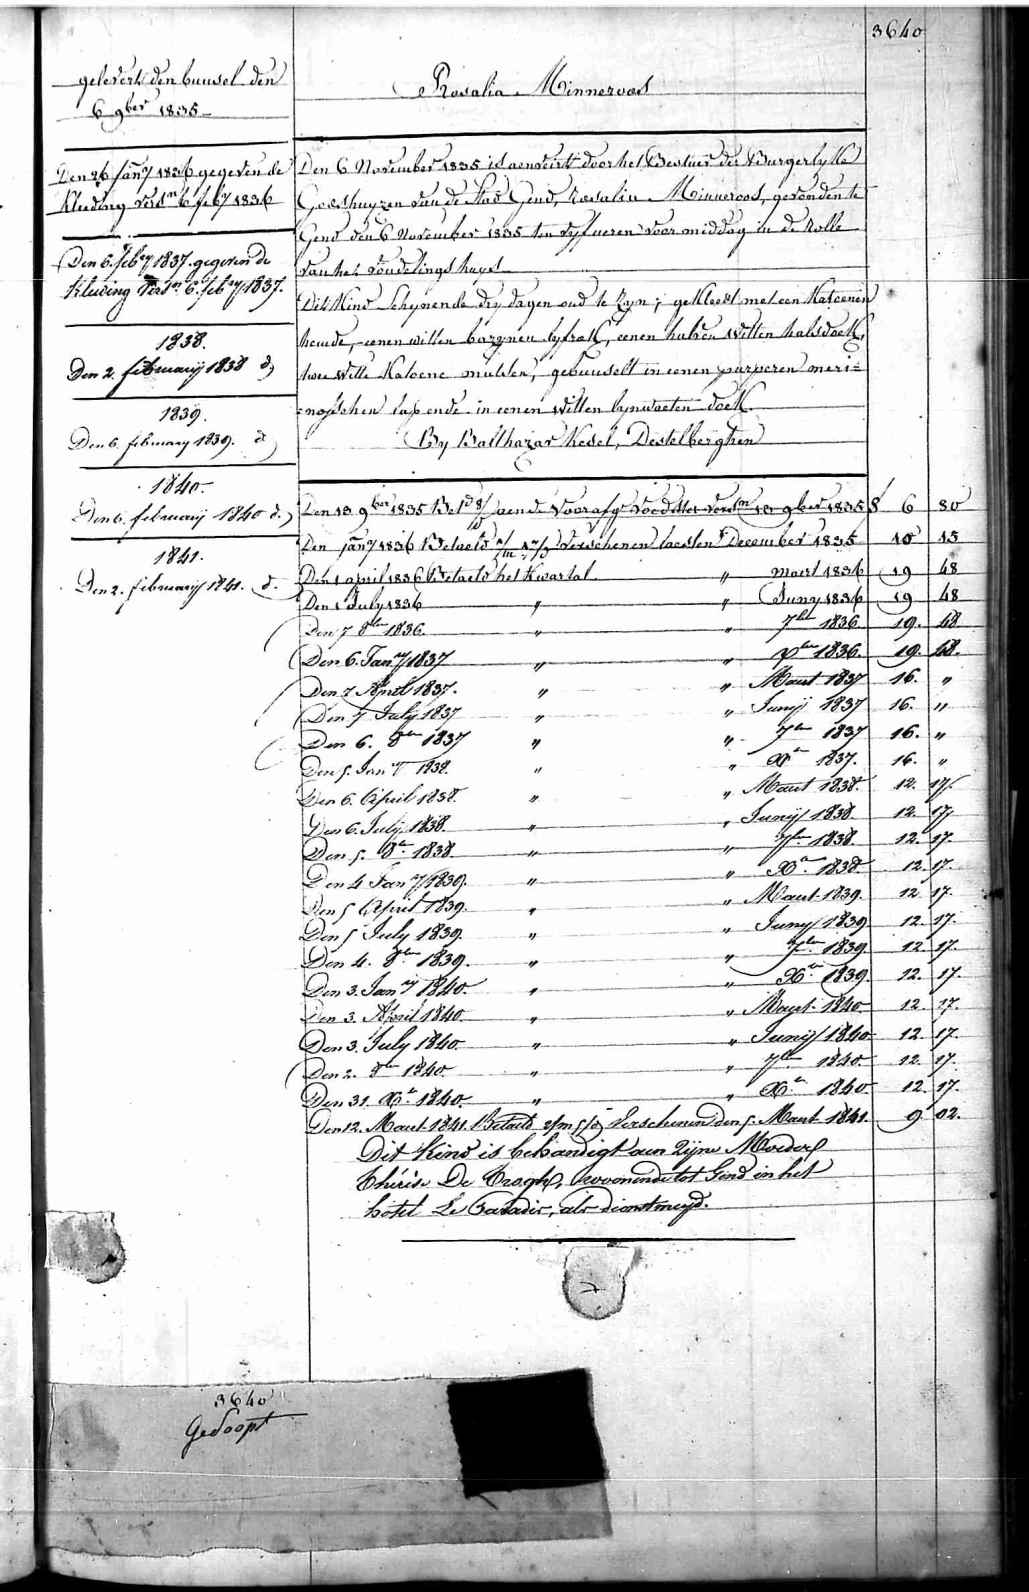 3640
gelevert den bunsel den
6 9ber 1835
Rosalia Minneroos
Den 26 Jany 1836 gegeven de
Kleeding versn 6 feby 1836
Den 6. febry 1837. gegeven de
Kleeding versn. 6. febry 1837.
1838.
Den 2. february 1838 d.
1839.
Den 6. february 1839. d.
1840.
Den 6. february 1840 d.
1841.
Den 2. february 1841. d.
Den 6 November 1835 is aenveirt door het Bestuer der Burgerlyke
Godshuyzen van de Stad Gend, Rosalia Minneroos, gevonden te
Gend den 6 November 1835 ten vyf ueren voormiddag in de Rolle
van het vondelingshuys
Dit Kind schynende dry dagen oud te zyn; gekleed met een Katoenen
hemde, eenen witten bazynen lyfrok, eenen halven witten halsdoek,
twee witte Katoene mutsen, gebunselt in eenen purperen meri=
=nosschen lap ende in eenen witten lynwaeten doek.
By Balthazar Kesel, Destelberghen
Den 13 9ber 1835 Bet d 8/ aen de Voorafge voedster versn 13 9ber 1835 6 80
Den Jany 1836 Betaeld verschenen laesten December 1835 10 15
Den 1 april 1836 Betaeld het Kwartal " maert 1836 19 48
Den 1 July 1836 " " Juny 1836 19 48
Den 7 8ber 1836. " " 7ber 1836 19. 48
Den 6. Jany 1837 " " Xber 1836. 19. 48.
Den 7 April 1837. " " Maert 1837 16. "
Den 7 July 1837 " " Junij 1837 16. "
Den 6. 8ber 1837 " " 7ber 1837 16. "
Den 5. Jany 1838. " " Xber 1837. 16. "
Den 6. April 1838. " " Maert 1838. 12. 17.
Den 6. July. 1838. " " Junij 1838. 12. 17.
Den 5. 8ber 1838 " " 7ber 1838. 12. 17.
Den 4 Jany 1839. " " Xber 1838. 12. 17.
Den 5 April 1839. " " Maert 1839. 12 17.
Den 5 July 1839. " " Juny 1839 12. 17.
Den 4. 8ber 1839. " " 7ber 1839 12. 17.
Den 3. Jany 1840. " " Xber 1839. 12. 17.
Den 3. April 1840. " " Maert 1840 12. 17.
Den 3. July 1840. " " Junij 1840 12. 17.
Den 2. 8ber 1840. " " 7ber 1840. 12. 17.
Den 31. Xber 1840. " " Xber 1840. 12. 17.
Den 12. Maert 1841. Betaeld verschenen den 5. Maert 1841. 9 02.
Dit Kind is behandigt aen Zijne Moeder
Thérèse De Croogh, woonende tot Gend in het
hôtel Le Paradis, als dienstmeyd.
3640
Gedoopt